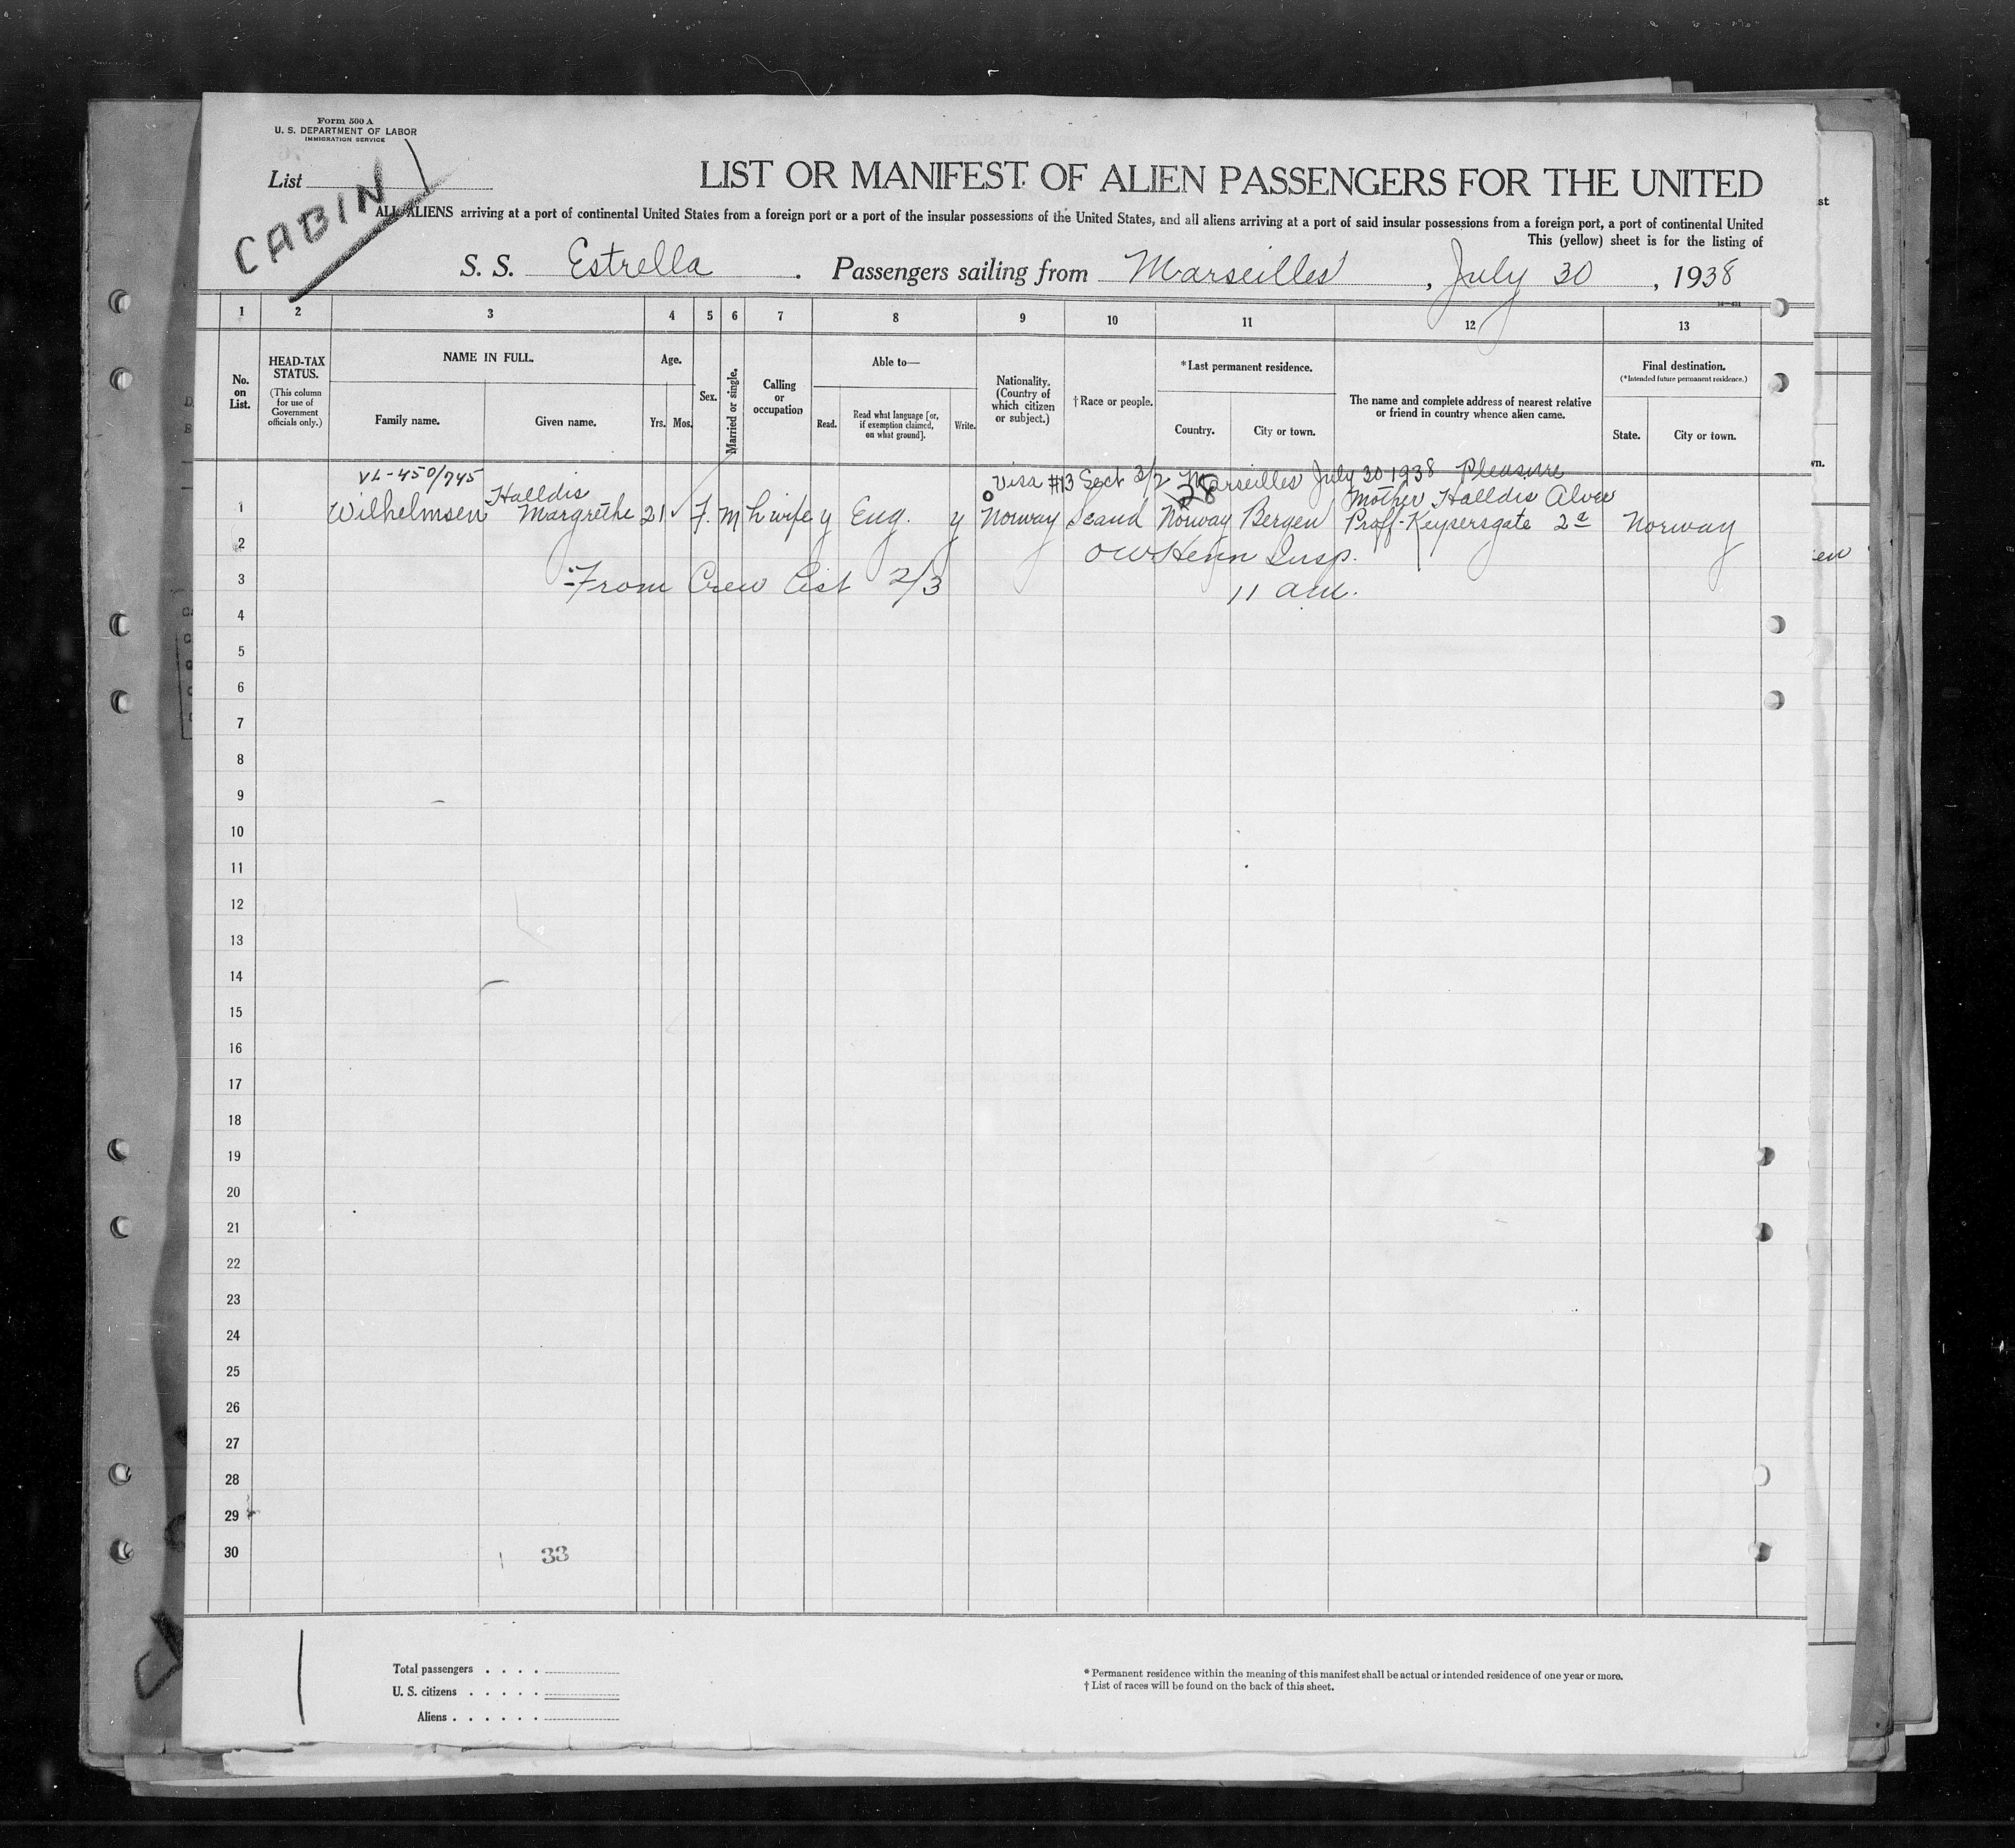 Form 500 A
U. S. DEPARTMENT OF LABOR
IMMIGRATION SERVICE
List
CABIN
LIST OR MANIFEST OF ALIEN PASSENGERS FOR THE UNITED
ALL ALIENS arriving at a port of continental United States from a foreign port or a port of the insular possessions of the United States, and all aliens arriving at a port of said insular possessions from a foreign port, a port of continental United
This (yellow) sheet is for the listing of
S. S. Estrella . Passengers sailing from Marseilles , July 30 , 1938
1 2 3 4 5 6 7 8 9 10 11 12 13
No. on List.
HEAD-TAX STATUS.
(This column for use of Government officials only.)
NAME IN FULL.
Family name.
Given name.
Age.
Yrs. Mos.
Sex.
Married or single.
Calling or occupation
Able to—
Read.
Read what language [or, if exemption claimed, on what ground].
Write.
Nationality. (Country of which citizen or subject.)
† Race or people.
*Last permanent residence.
Country.
City or town.
The name and complete address of nearest relative or friend in country whence alien came.
Final destination.
(*Intended future permanent residence.)
State.
City or town.
VL-450/745 Visa #13 Sect 3/2 Marseilles July 30 1938 Pleasure
Halldis 28 Mother Halldis
1 Wilhelmsen Margrethe 21 F. M h wife y Eng. y Norway Scand Norway Bergen Proff-Keysersgate 2a Norway
2 Insp.
3 From Crew List 2/3 11 am.
4
5
6
7
8
9
10
11
12
13
14
15
16
17
18
19
20
21
22
23
24
25
26
27
28
29
30 33
Total passengers . . . .
U. S. citizens . . . . .
Aliens . . . . . .
* Permanent residence within the meaning of this manifest shall be actual or intended residence of one year or more.
† List of races will be found on the back of this sheet.